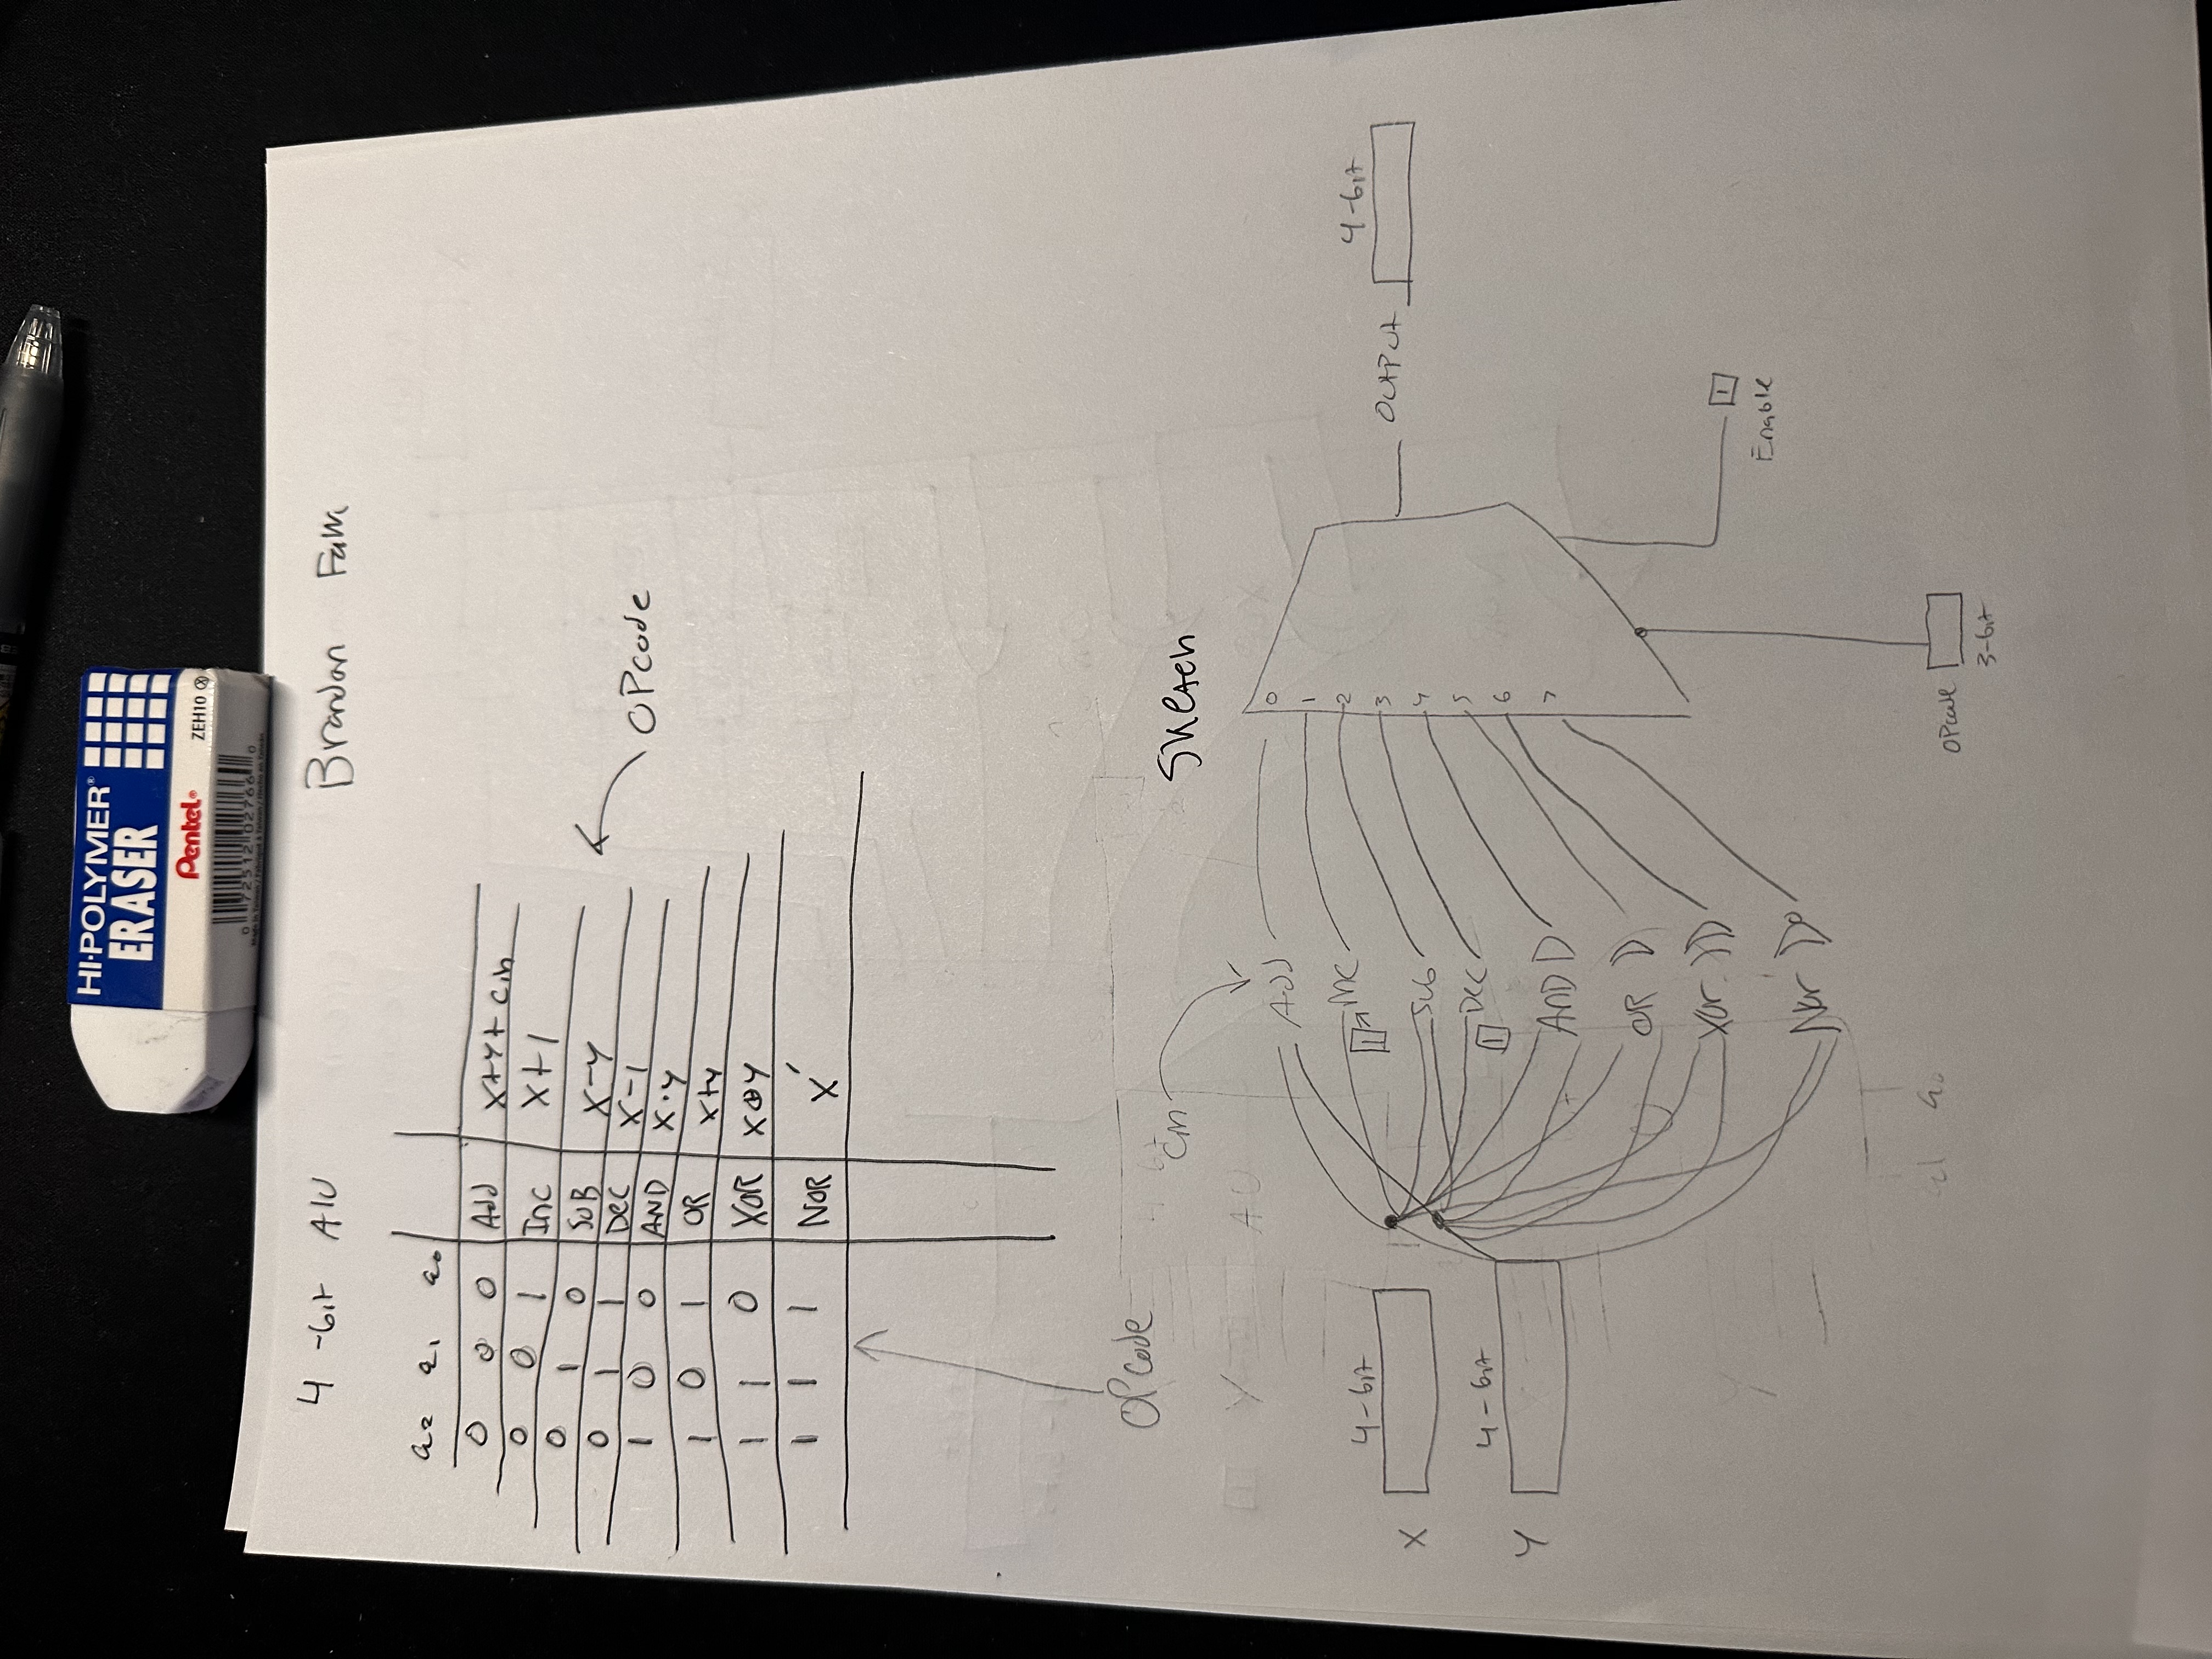 HI-POLYMER®
ERASER
Pentel®
ZEH10
0 72512 02766 0
Made in Taiwan / Fabriqué à Taiwan / Hecho en Taiwán
4-bit AlU
Brandon
a2 a1 a0
0 0 0 Add X+Y+Cin
0 0 1 Inc X+1
0 1 0 SUB X-Y
0 1 1 Dec X-1
1 0 0 AND X·Y
1 0 1 OR X+Y
1 1 0 XOR X⊕Y
1 1 1 NOR X′
OPcode
OPcode
Cin
Sketch
Add
Inc
1
Sub
Dec
1
AND
OR
Xor
Nor
0
1
2
3
4
5
6
7
4-bit
X
4-bit
Y
OUTPUT
4-bit
1
Enable
OPcode
3-bit